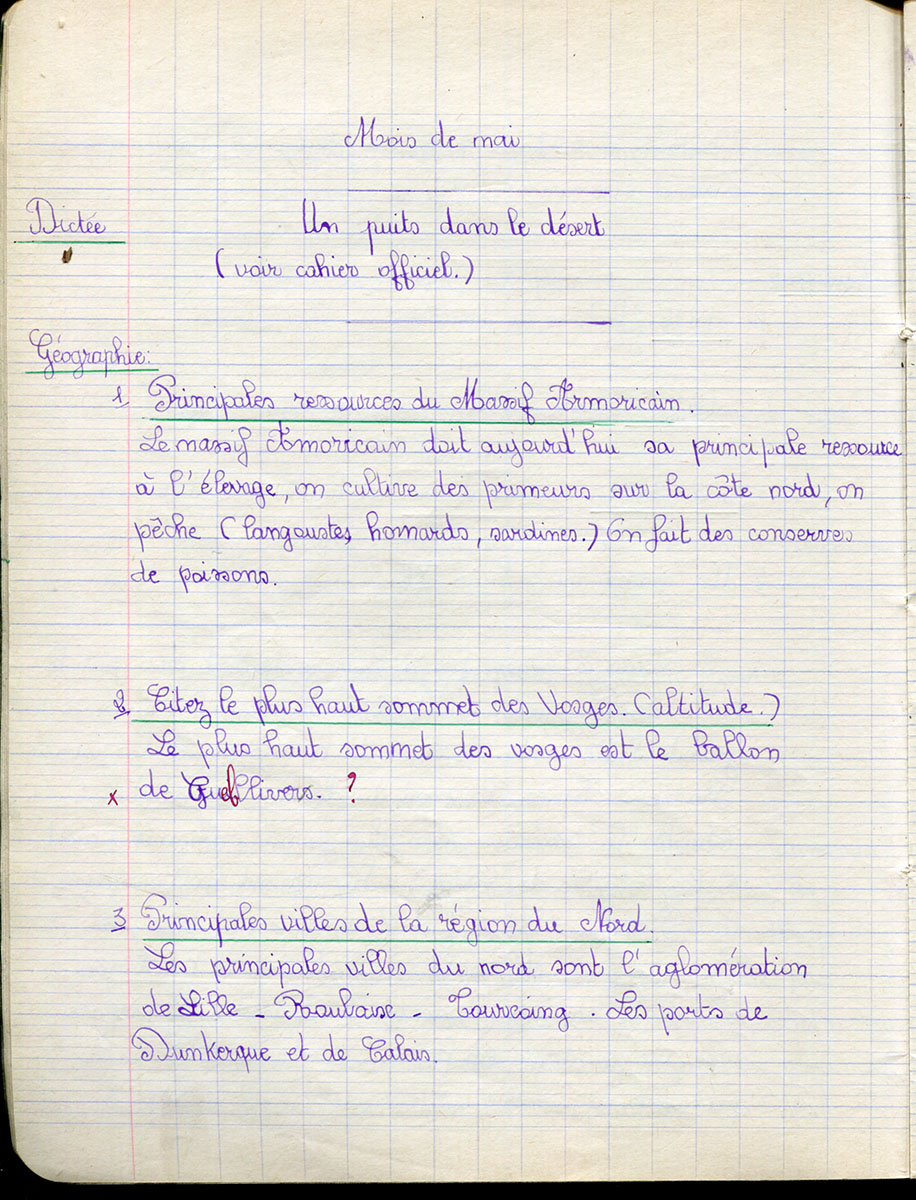 Mois de mai
Dictée
Un puits dans le désert
(voir cahier officiel.)
Géographie:
1 Principales ressources du Massif Armoricain.
Le massif Amoricain doit aujourd'hui sa principale ressource
à l'élevage, on cultive des primeurs sur la côte nord, on
pêche (langoustes, homards, sardines.) On fait des conserves
de poissons.
2 Citez le plus haut sommet des Vosges. (altitude.)
Le plus haut sommet des vosges est le ballon
x de ?
3 Principales villes de la région du Nord.
Les principales villes du nord sont l'aglomération
de Lille - Roubaise - Tourcoing. Les ports de
Dunkerque et de Calais.